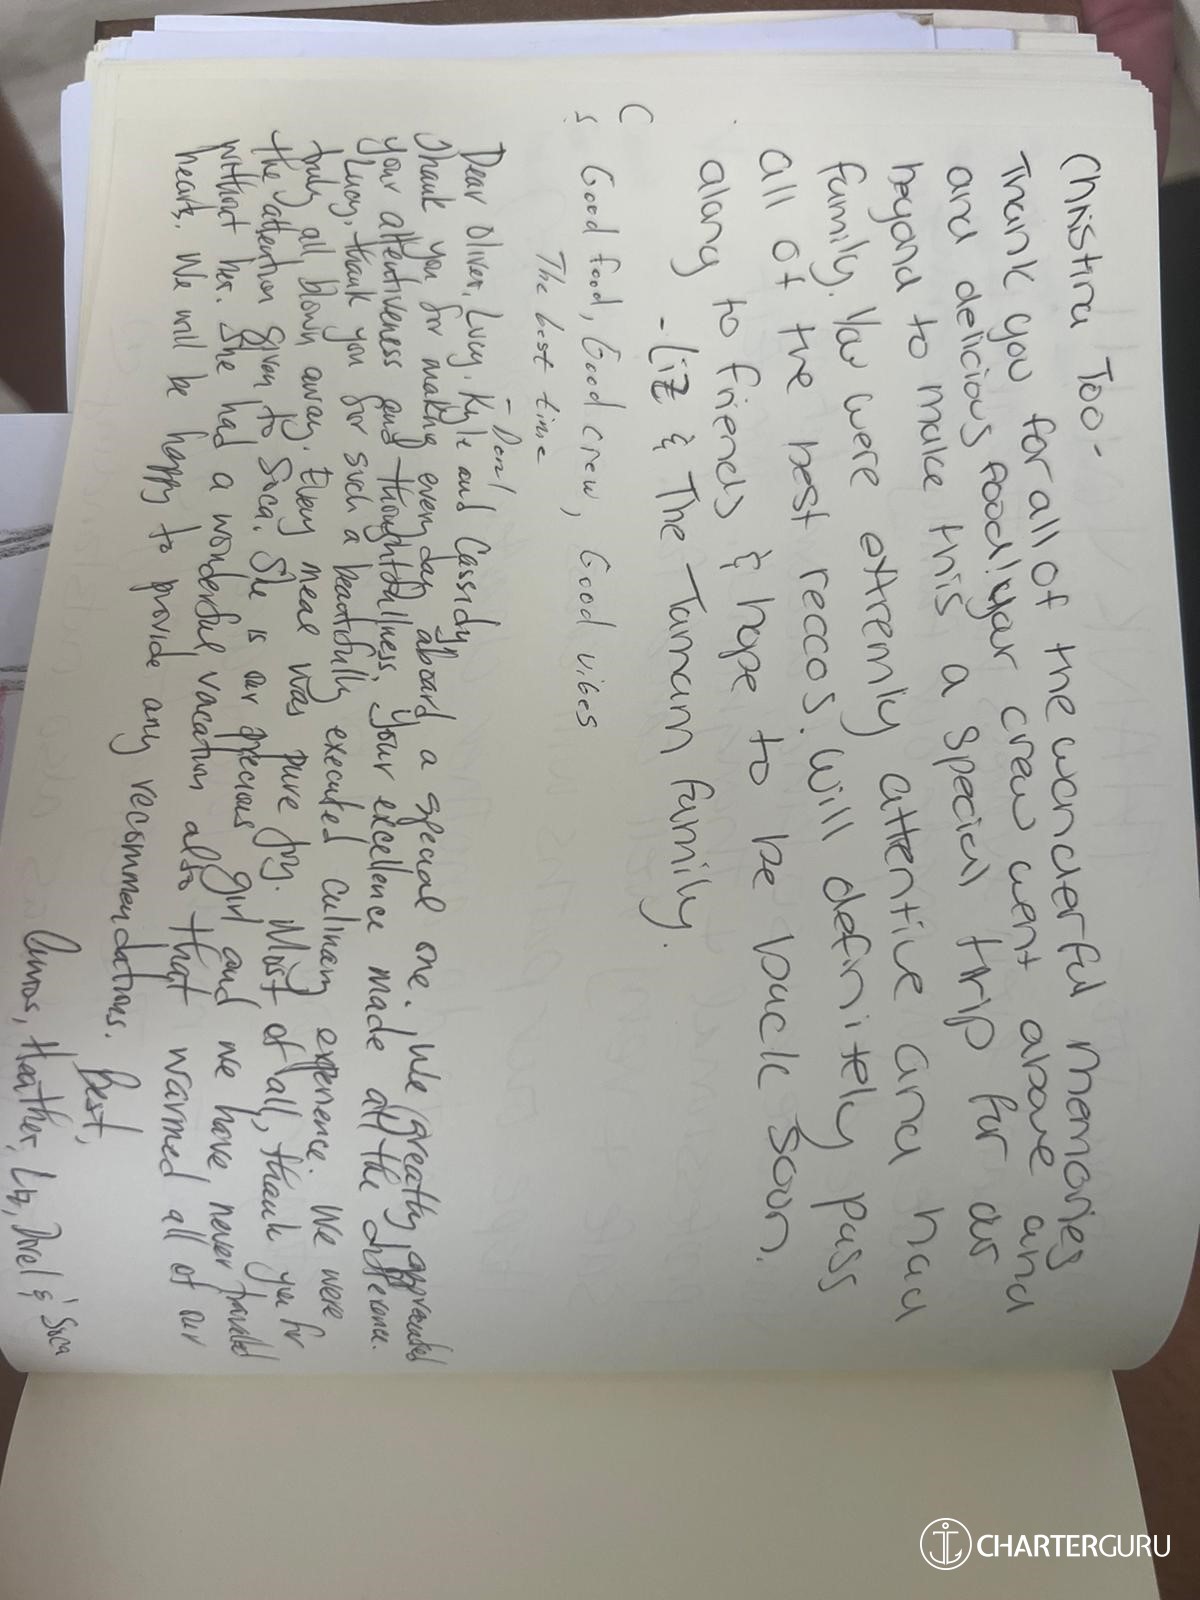 Christina Too-
Thank you for all of the wonderful memories
and delicious food! your crew went above and
beyond to make this a special trip for our
family. You were extremly attentive and had
all of the best reccos. will definitely pass
along to friends & hope to be back soon.
- Liz & The Tamam family.
C
s Good food, Good crew, Good vibes
The best time
Dear Oliver, Lucy, Kyle and Cassidy,
Thank you for making every day aboard a special one. We greatly appreciated
your attentiveness and thoughtfullness, your excellence made all the difference.
Lucy, thank you for such a beautifully executed culinary experience. We were
truly all blown away. Every meal was pure joy. Most of all, thank you for
the attention given to Soca. She is our precious girl and we have never traveled
without her. She had a wonderful vacation also that warmed all of our
hearts. We will be happy to provide any recommendations.
Best,
Heather, Liz, & Soca
CHARTERGURU